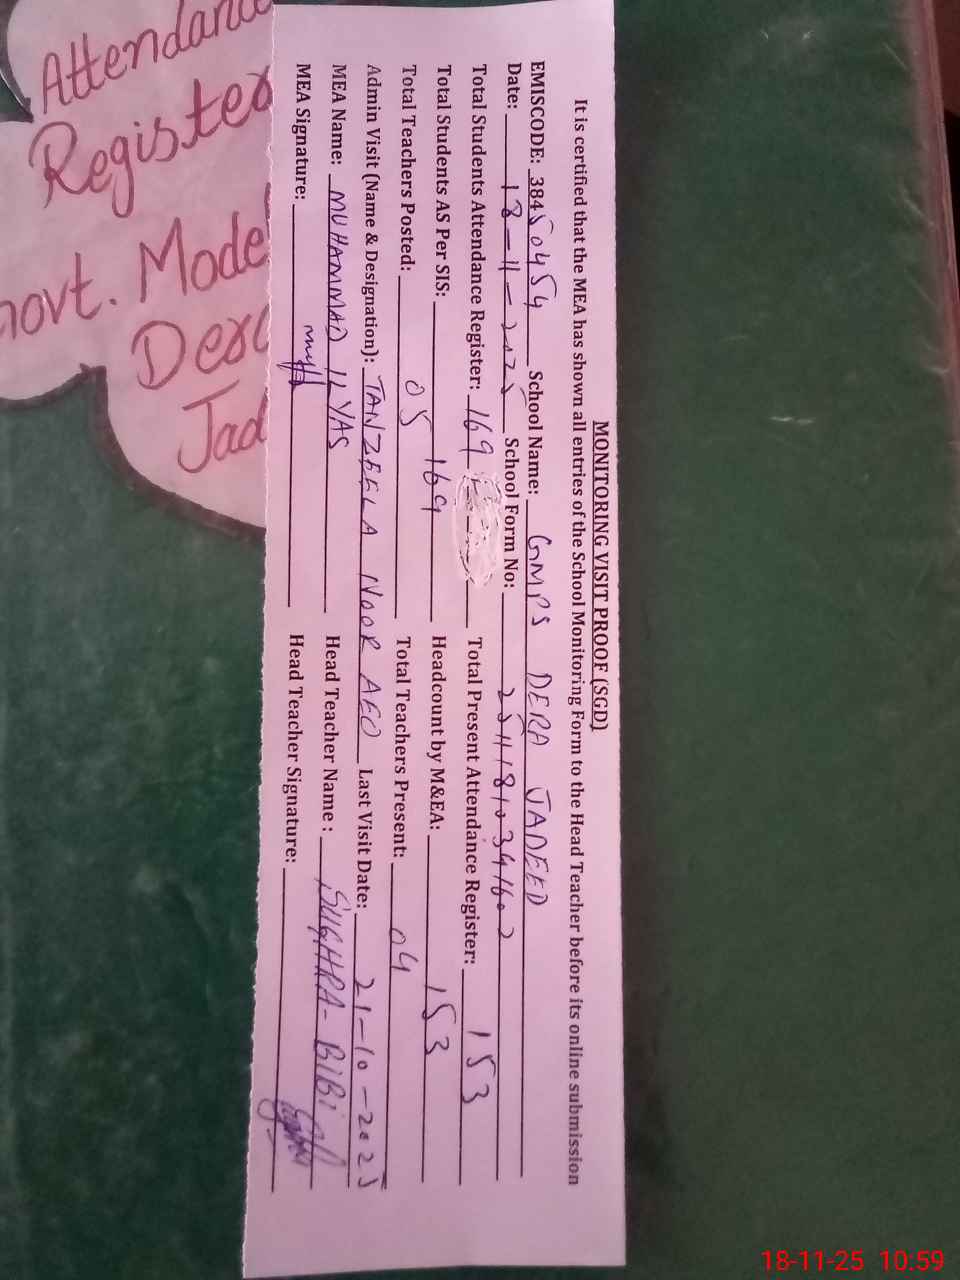 MONITORING VISIT PROOF (SGD)
It is certified that the MEA has shown all entries of the School Monitoring Form to the Head Teacher before its online submission
EMISCODE: 38450454 School Name: GMPS DERA JADEED
Date: 18-11-2025 School Form No:
Total Students Attendance Register: 169 Total Present Attendance Register: 153
Total Students AS Per SIS: 169 Headcount by M&EA: 153
Total Teachers Posted: 05 Total Teachers Present: 04
Admin Visit (Name & Designation): TANZEELA NOOR AEO Last Visit Date: 21-10-2025
MEA Name: MUHAMMAD ILYAS Head Teacher Name : SUGHRA-BIBI
MEA Signature: Head Teacher Signature:
Attendanc
Register
Govt. Mode
Dera
Jad
18-11-25 10:59